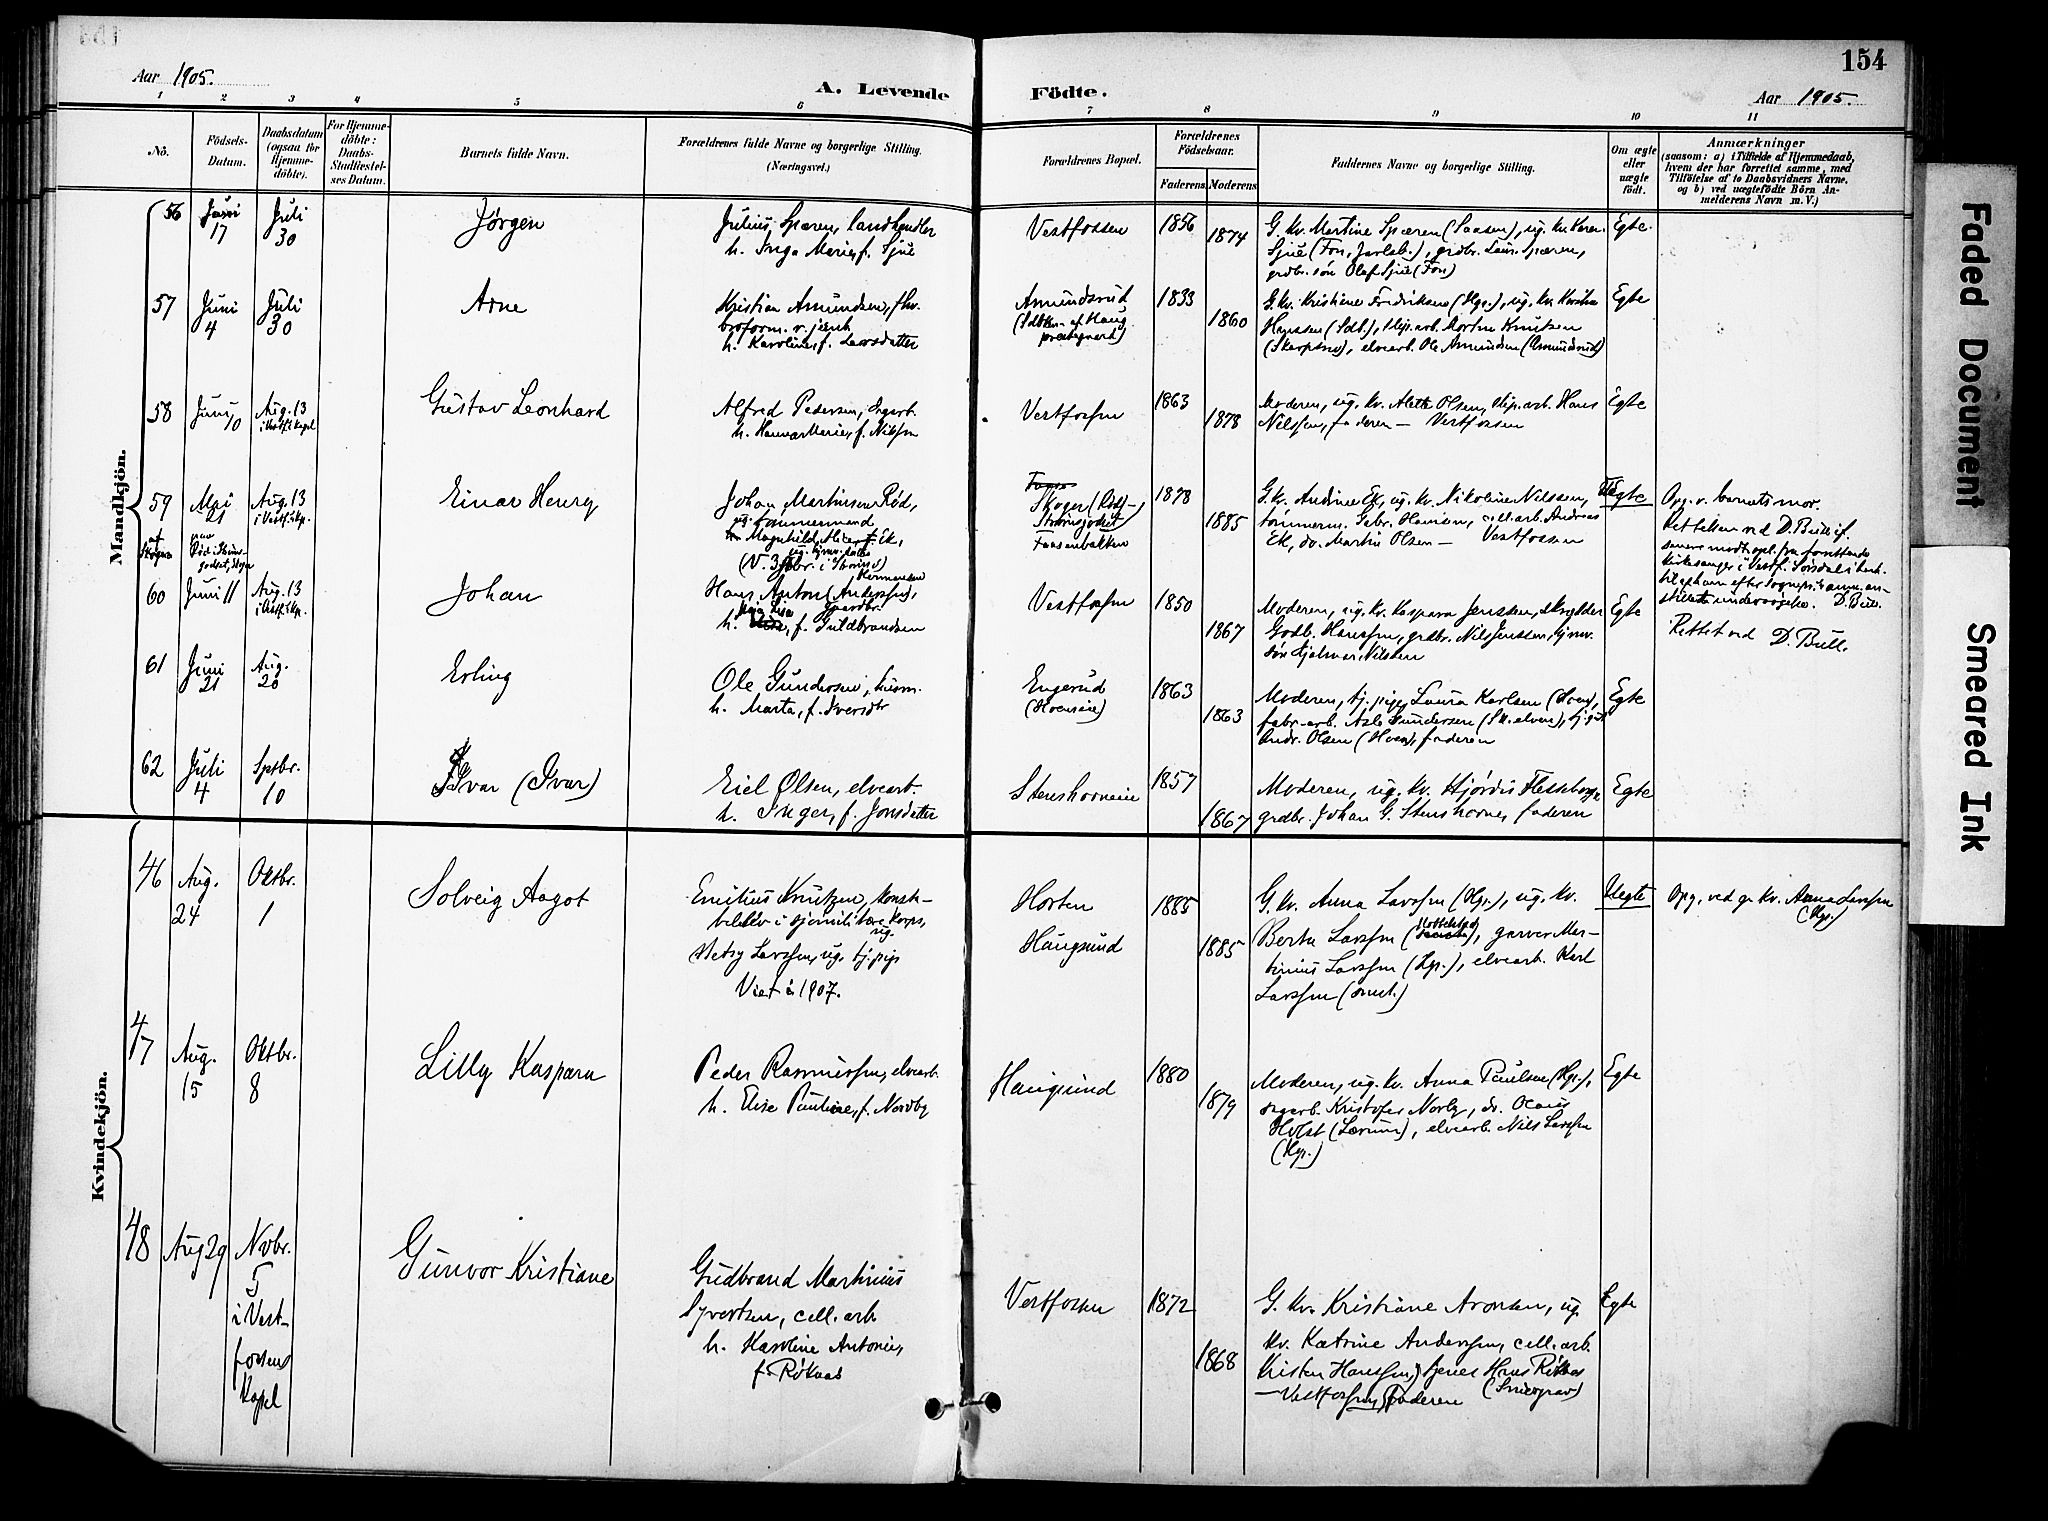 154
Aar 1905.
A. Levende Födte.
Aar 1905.
1 2 3 4 5 6 7 8 9 10 11
No.
Födsels-
Datum.
Daabsdatum
(ogsaa for
Hjemme-
döbte).
For Hjemme-
döbte:
Daabs-
Stadfæstel-
ses Datum.
Barnets fulde Navn.
Forældrenes fulde Navne og borgerlige Stilling.
(Næringsvei.)
Forældrenes Bopæl.
Forældrenes
Födselsaar.
Faderens. Moderens.
Faddernes Navne og borgerlige Stilling.
Om ægte
eller
uægte
födt.
Anmærkninger
(saasom: a) i Tilfælde af Hjemmedaab,
hvem der har forrettet samme, med
Tilföielse af to Daabsvidners Navne,
og b) ved uægtefödte Börn An-
melderens Navn m. V.)
Mandkjön.
56 Juni 17 Juli 30 Jørgen
Julius Spæren, landhandler
h. Inga Marie, f. Sjue
Vestfossen 1856 1874
G. kv. Martine Spæren (Saasen), ug. kv. Karen
Sjue (Fon, Jarlsb.), grdbr. Laur. Spæren,
grdbr. søn Olaf Sjue (Fon)
Egte.
57 Juni 4 Juli 30 Arne
Kristian Amundsen, fhv.
broform. v. jernb.
h. Karoline, f. Larsdatter
Amundsrud
1833 1860
G. kv. Kristine Fredriksen (Hgs.), ug. kv.
Hanssen (Sdb.), slip. arb. Morten Knutsen
elvearb. Ole Amundsen (Amundsrud)
Egte
58 Juni 10 Aug. 13 i Vestf. kapel Gustav Leonhard
Alfred Pedersen, sagarb.
h. Hanna Marie, f. Nilsen
Vestfossen 1863 1878
Moderen, ug. kv. Alette Olsen, slip. arb. Hans
Nilssen, faderen — Vestfossen
Egte
59 Mai 21 Aug. 13 i Vestf. kp. Einar Henry
Johan Martinsen Rød,
ug. tømmermand
Magnhild Alice Ek,
Skoger (Rød—
Strømsgodset
Faasenbakken
1878 1885
G. kv. Andrine Ek, ug. kv. Nikoline Nilssen,
tømmerm. Gabr. Hansen, cell. arb. Andreas
Ek, do. Martin Olsen — Vestfossen
Uegte
Opg. v. barnets mor.
Rettelsen ved D. Bull if.
D. Bull.
60 Juni 11 Aug. 13 i Vestf. kp. Johan
Hans Anton (Anderssen), Hermansen
gaardbr.
h. Maja Lisa, f. Guldbrandsen
Vestfossen 1850 1867
Moderen, ug. kv. Kaspara Jenssen, skrædder
Gudb. Hanssen, grdbr. Nils Jenssen,
søn Hjalmar Nilsen
Egte
Rettet ved D. Bull.
61 Juni 21 Aug. 20 Erling
Ole Gundersen, husm.
h. Marta, f. Iversdtr
Engerud
(Hoenseie)
1863 1863
Moderen, tj. pige Laura Karlsen (Hoen),
fabr. arb. Axle Gundersen (St. elven), tj. gut
Andr. Olsen (Hoen), faderen
Egte
62 Juli 4 Sptbr. 10 Ivar (Ivar)
Eiel Olsen, elvearb.
h. Inger, f. Jonsdatter
Stenshorneie 1857 1867
Moderen, ug. kv. Hjørdis Flesseberg,
grdbr. Johan G. Stenshorne, faderen
Egte
Kvindekjön.
46 Aug. 24 Oktbr. 1 Solveig Aagot
Emilius Knutzen, konsta-
belelev i sjømilitære korps, ug.
Netsy Larssen, ug. tj. pige
Viet i 1907.
Horten
Haugsund
1885 1885
G. kv. Anna Larssen (Hgs.), ug. kv.
Berta Larssen, garver Mar-
tinius Larssen (Hgs.), elvearb. Karl
Larssen
Uegte
Opg. ved g. kv. Anna Larssen
(Hgs.)
47 Aug. 15 Oktbr. 8 Lilly Kaspara
Peder Rasmussen, elvearb.
h. Elise Pauline, f. Nordby
Haugsund 1880 1879
Moderen, ug. kv. Anna Paulsen (Hgs.),
sagarb. Kristofer Norby, do. Olaus
Holst (Lærum), elvearb. Nils Larssen
(Hgs.)
Egte
48 Aug 29 Novbr. 5 i Vest-
fossens
Kapel
Gunvor Kristiane
Gudbrand Martinius
Syvertsen, cell. arb.
h. Karoline Antonie,
f. Røknes
Vestfossen 1872 1868
G. kv. Kristiane Aronsen, ug.
kv. Katrine Anderssen, cell. arb.
Kristen Hanssen, Hans Røknes
— Vestfossen, faderen
Egte
Faded Document
Smeared Ink